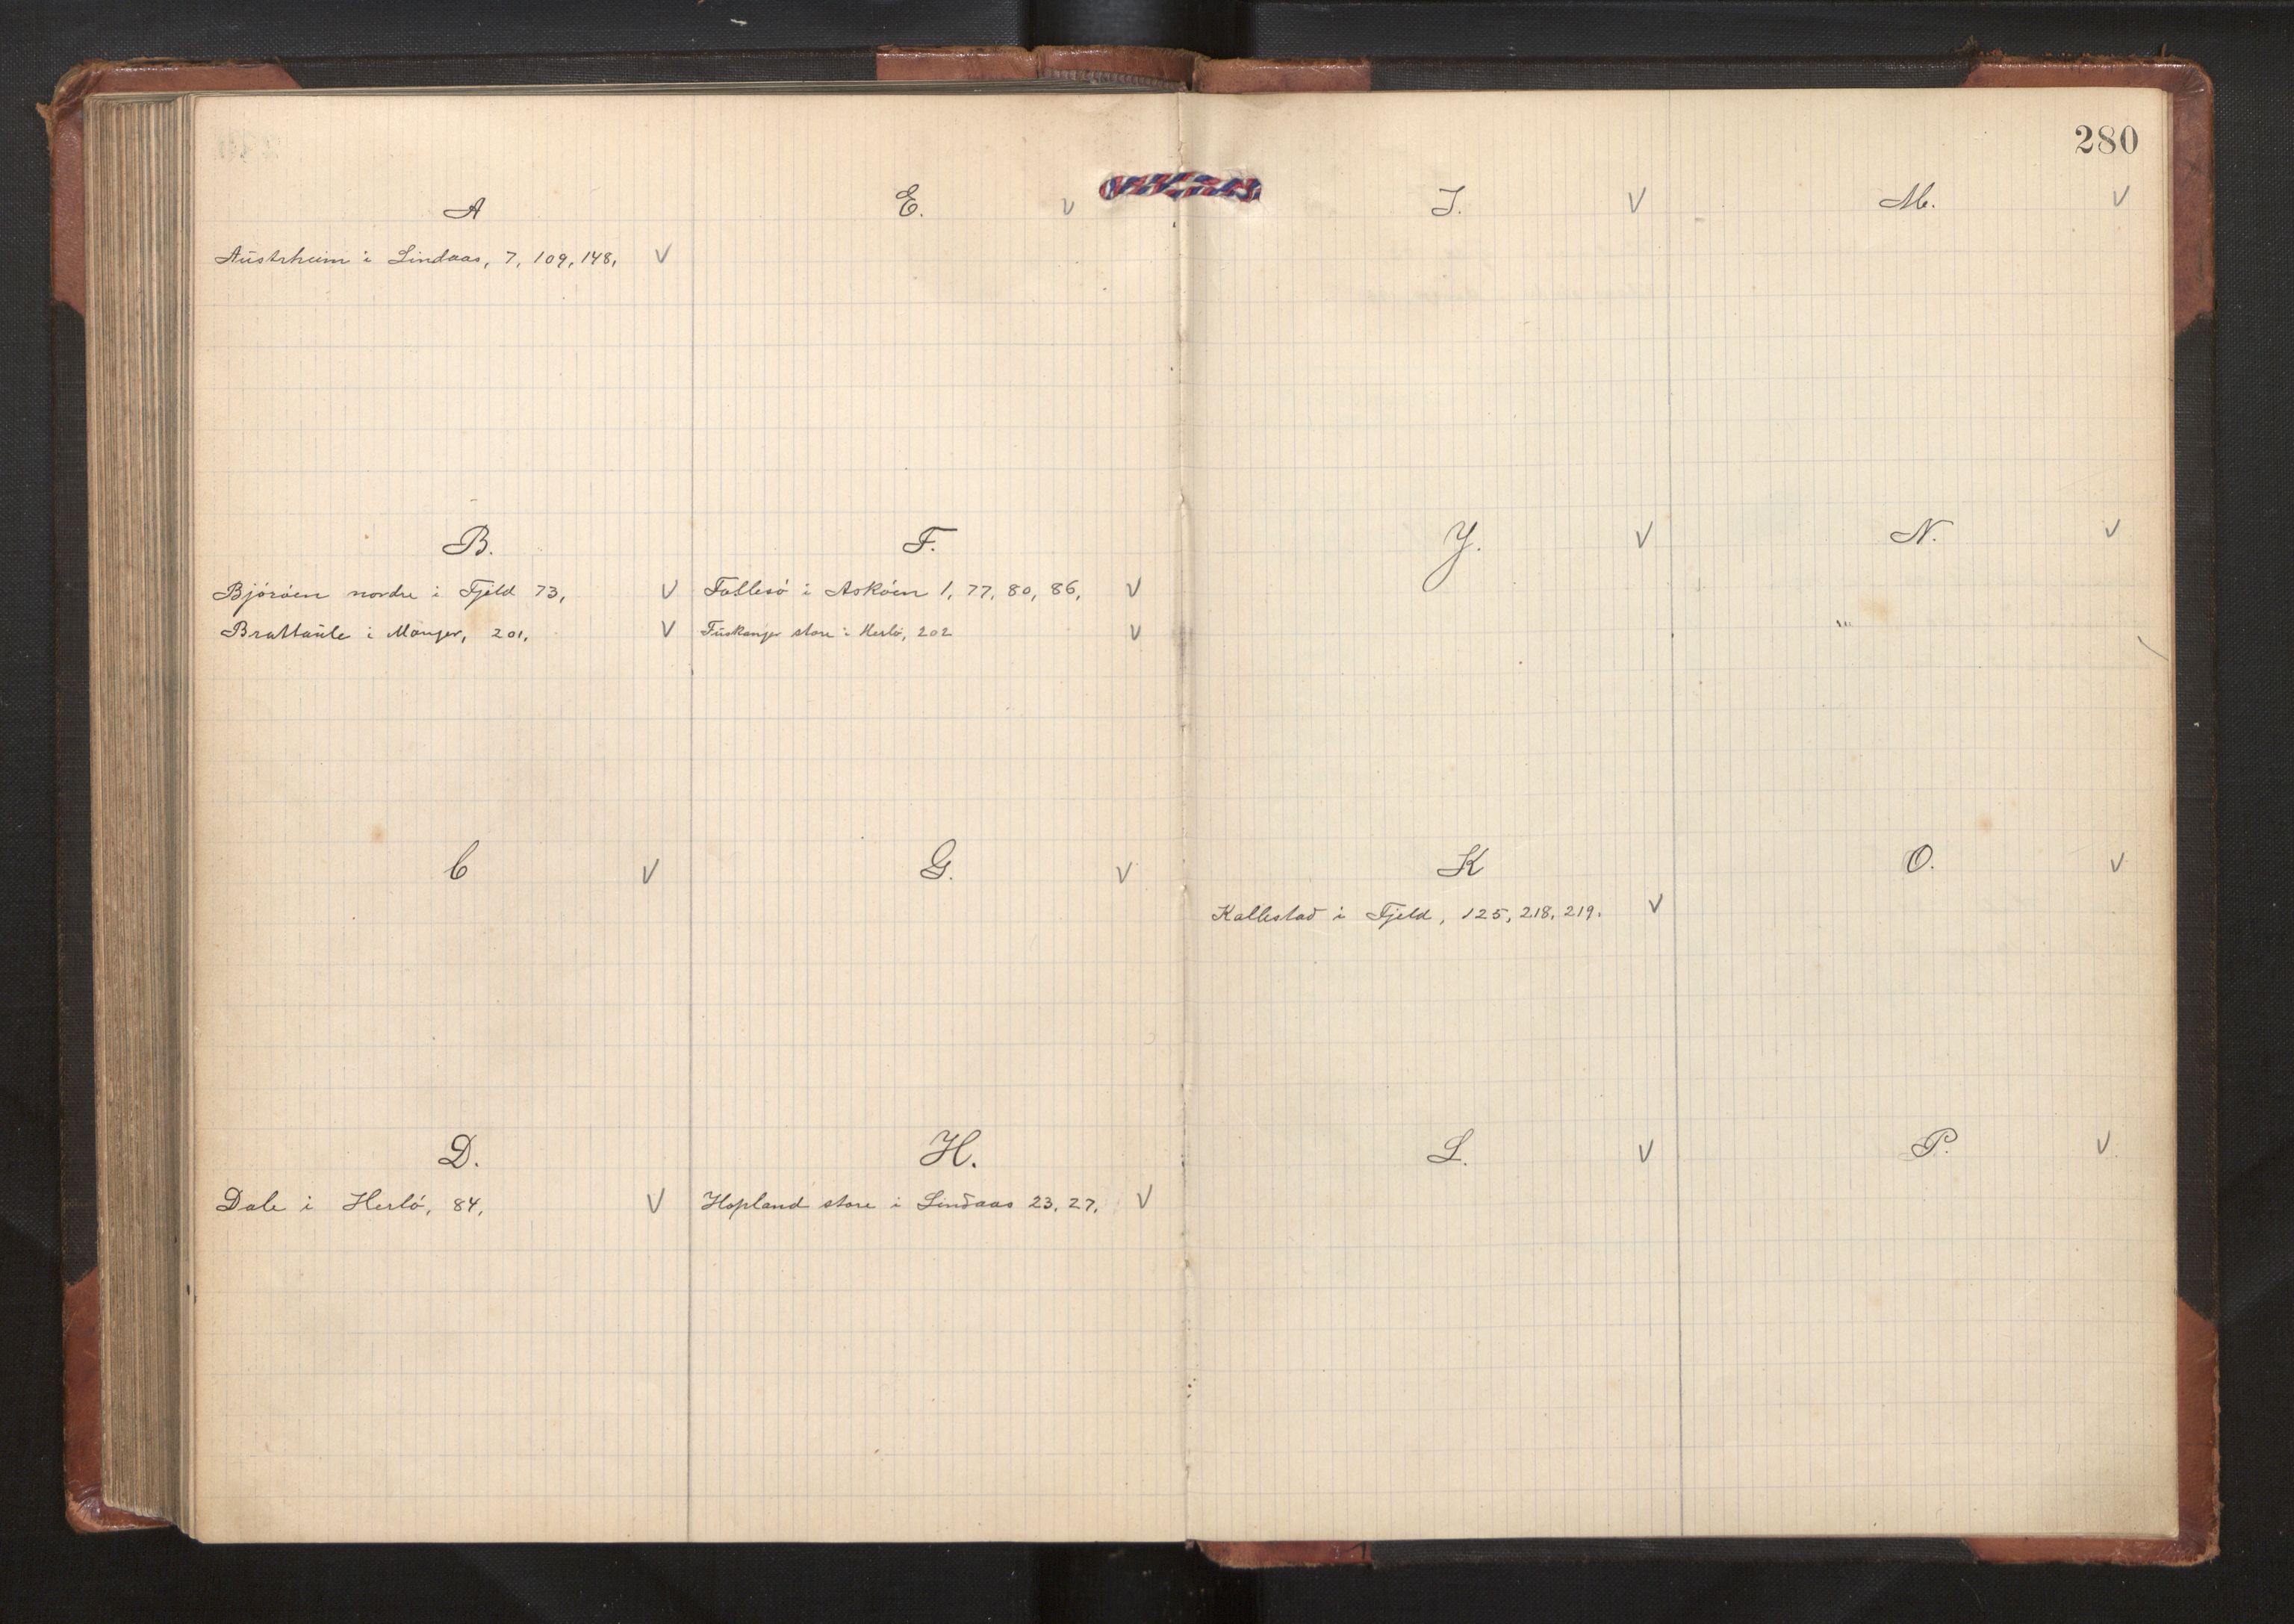 280
A
Austrheim i Lindaas, 7, 109, 148,  V
B.
Björöen nordre i Fjeld 73,  V
Brattaule i Manger, 201,  V
C  V
D.
Dale i Herlö, 84,  V
E.  V
F.
Follesö i Asköen 1, 77, 80, 86,  V
Fuskanger store i Herlö, 202  V
G.  V
H.
Hopland store i Lindaas 23, 27,  V
I.  V
Y.  V
K
Kallestad i Fjeld, 125, 218, 219.  V
L.  V
M.  V
N.  V
O.  V
P.  V